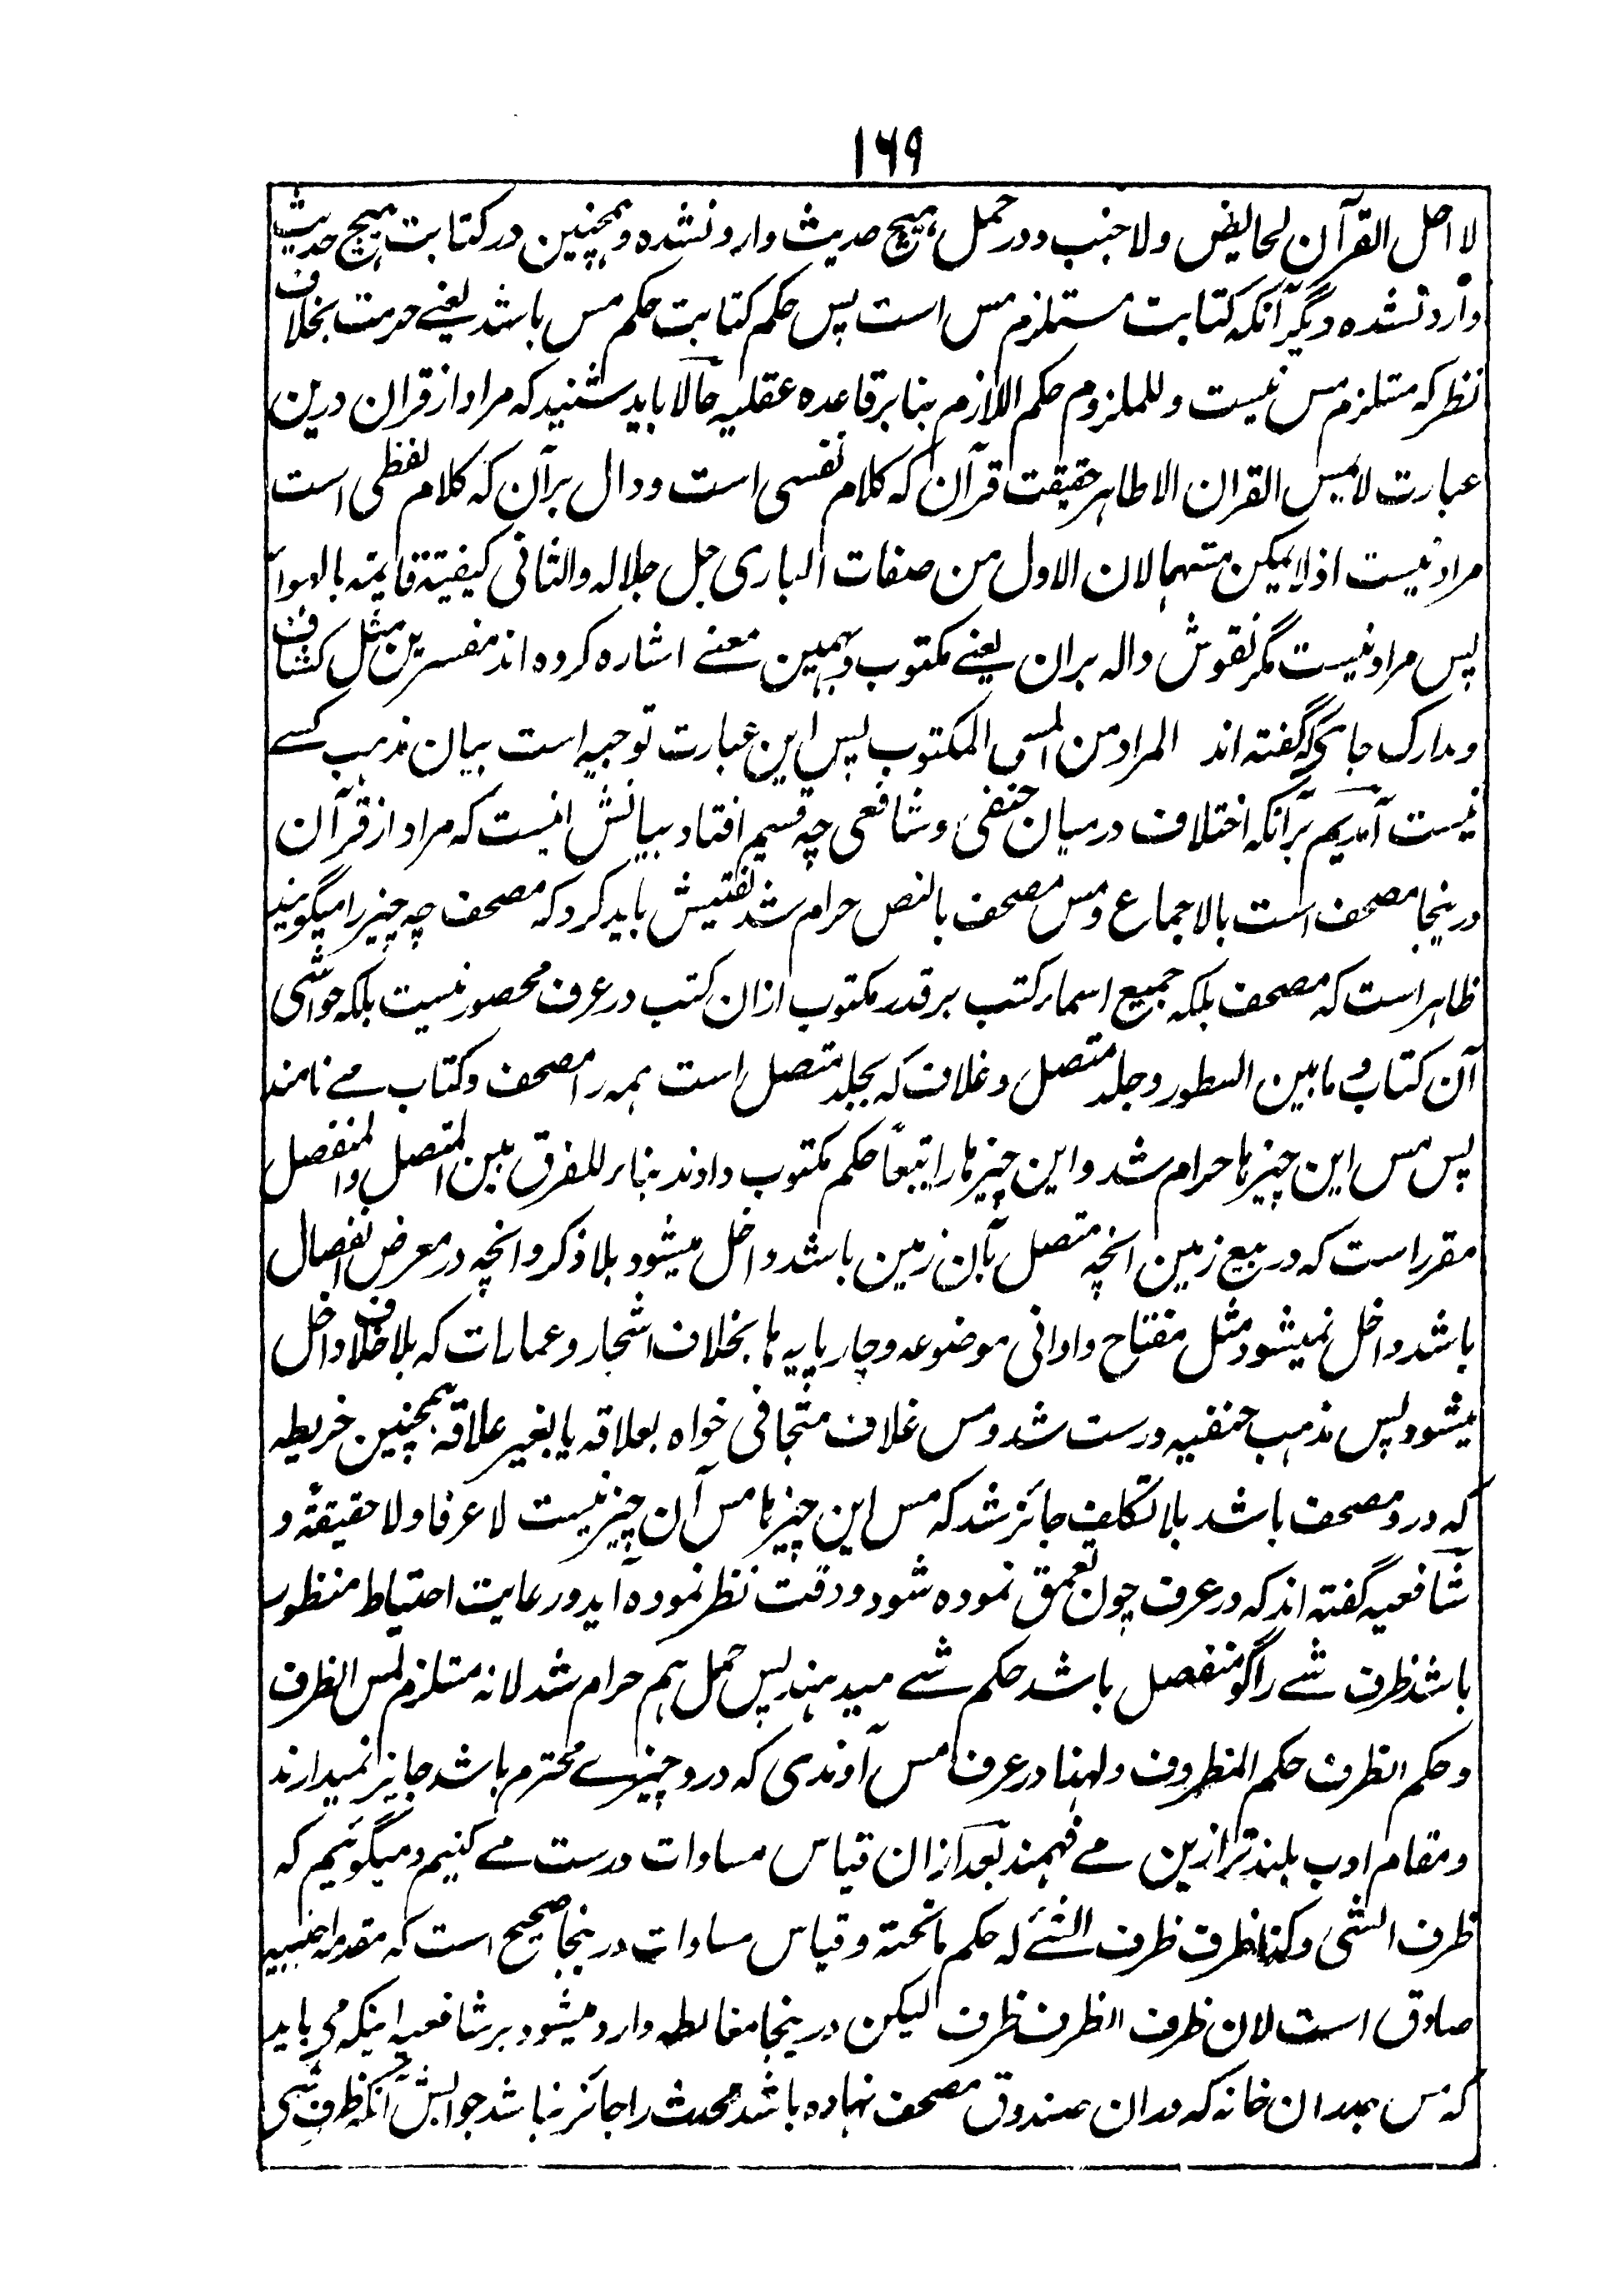 ۱۶۹
لا احل القرآن لحائض ولا جنب و در حمل هیچ حدیث وارد نشده و همچنین در کتابت هیچ حدیث
وارد نشده دیگر آنکه کتابت مستلزم مس است پس حکم کتابت حکم مس باشد یعنے حرمت بخلاف
نظر که مستلزم مس نیست و للملزوم حکم اللازم بنا بر قاعده عقلیه حالا باید شنید که مراد از قران درین
عبارت لا یمس القران الا طاهر حقیقت قرآن که کلام نفسی است و دال بر آن که کلام لفظی است
مراد نیست اذ لا یمکن مسهما لان الاول من صفات الباری جل جلاله والثانی کیفیة قایمة بالهواء
پس مراد نیست مگر نقوش داله بران یعنے مکتوب و بهمین معنے اشاره کرده اند مفسرین مثل کشاف
و مدارک جائیکه گفته اند المراد من المس المکتوب پس این عبارت توجیه است بیان مذهب کسے
نیست آمدیم بر آنکه اختلاف درمیان حنفی و شافعی چه قسم افتاد بیانش اینست که مراد از قرآن
درینجا مصحف است بالاجماع و مس مصحف بالنص حرام شد تفتیش باید کرد که مصحف چه چیز را میگویند
ظاهر است که مصحف بلکه جمیع اسماء کتب بر قدر مکتوب ازان کتب در عرف محصور نیست بلکه حواشی
آن کتاب و ما بین السطور و جلد متصل و غلاف که بجلد متصل است همه را مصحف و کتاب مے نامند
پس مس این چیزها حرام شد و این چیزها را تبعاً حکم مکتوب دادند بناء للفرق بین المتصل والمنفصل
مقرر است که در بیع زمین انچه متصل بآن زمین باشد داخل میشود بلا ذکر و انچه در معرض انفصال
باشد داخل نمیشود مثل مفتاح و اوانی موضوعه و چارپایه ها بخلاف اشجار و عمارات که بلا خلاف داخل
میشود پس مذهب حنفیه درست شد و مس غلاف متجافی خواه بعلاقه یا بغیر علاقه همچنین خریطه
که درو مصحف باشد بلا تکلف جائز شد که مس این چیزها مس آن چیز نیست لا عرفا ولا حقیقة و
شافعیه گفته اند که در عرف چون تعمق نموده شود و دقت نظر نموده آید و رعایت احتیاط منظور
باشد ظرف شے را گو منفصل باشد حکم شے میدهند پس حمل هم حرام شد لانه مستلزم لمس الظرف
و حکم الظرف حکم المظروف ولهذا در عرف مس آوندی که درو چیزے محترم باشد جایز نمیدارند
و مقام ادب بلند تر ازین مے فهمند بعد ازان قیاس مساوات درست مے کنیم و میگوئیم که
ظرف الشی و کذا ظرف ظرف الشئے له حکم ما تحته و قیاس مساوات درینجا صحیح است که مقدمه اجنبیه
صادق است لان ظرف الظرف ظرف لیکن درینجا مغالطه وارد میشود بر شافعیه اینکه مے باید
که مس جدران خانه که دران صندوق مصحف نهاده باشد محدث را جائز نباشد جوابش آنکه ظرف شی